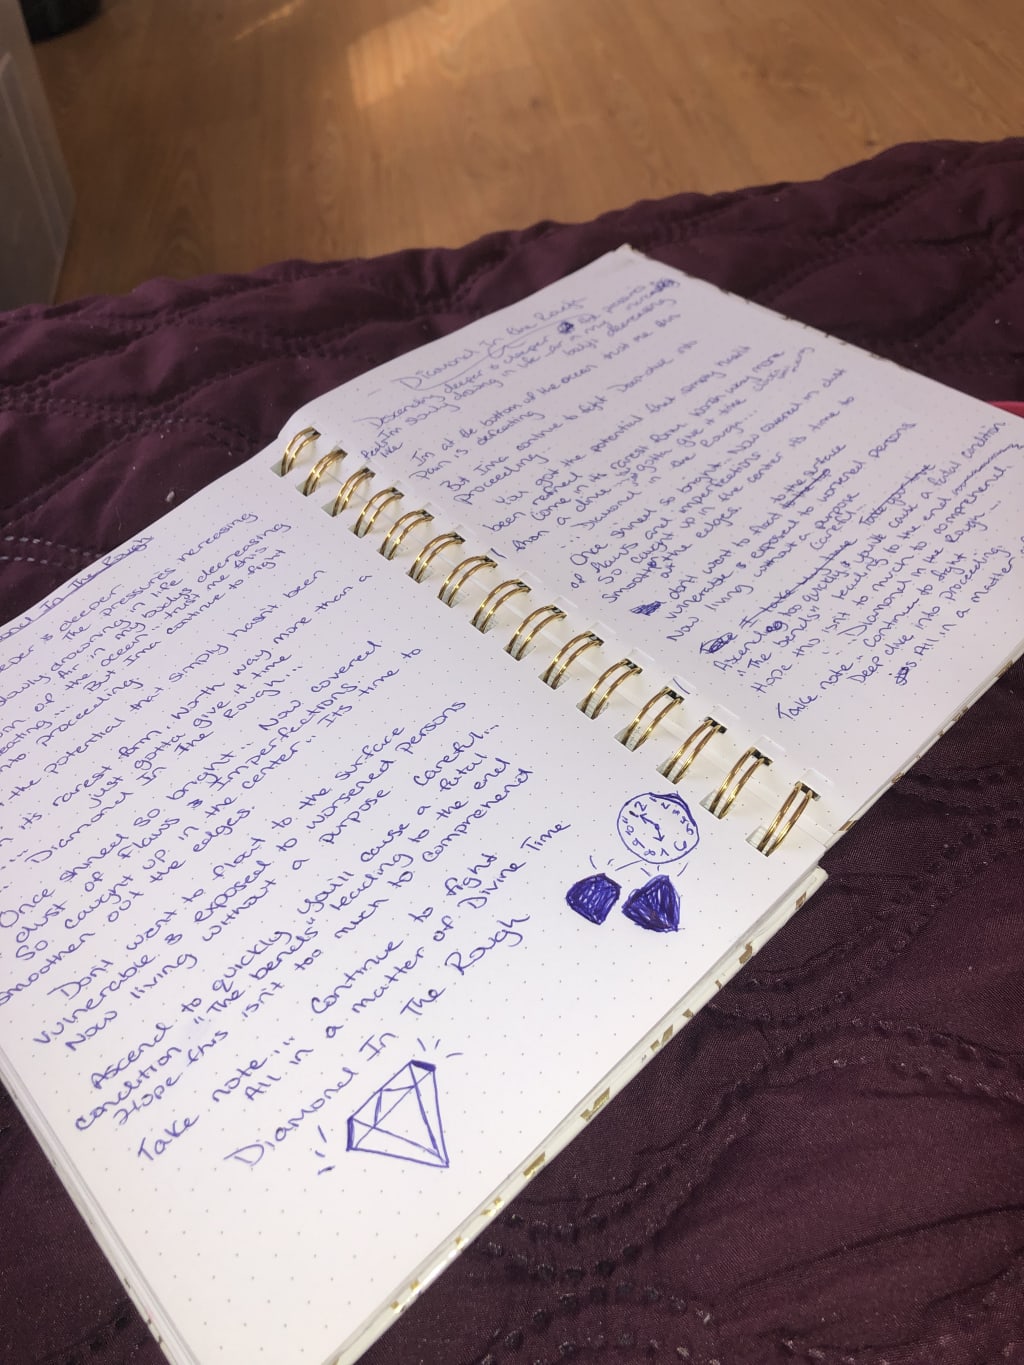 Diamond In The Rough
Descending deeper & deeper the pressures increasing
Feel Im slowly drowning in life air in my
like body's decreasing
Im at the bottom of the ocean trust me this
pain is defeating
But Ima continue to fight Deep dive into
proceeding..
You got the potential that simply hasn't
been refined
Come in its rarest form. Worth way more
than a dime.. just gotta give it time
.. Diamond in the Rough...
Once shined so bright.. Now covered in dust
of flaws and imperfections
So caught up in the center its time to
smoothen out the edges.
don't want to float to the surface
Vunerable & exposed to worsened persons
Now living without a purpose
Careful...
Ascend to quickly & you'll cause a fatal condition
"The bends" leading to the end
Hope this isn't to much to comprehend
.. Diamond in the Rough...
Take note.. Continue to fight
Deep dive into proceeding
All in a matter
In The Rough
deeper & deeper
The pressures increasing
slowly drowning in life
Air in my body's decreasing
of the ocean trust me this
But Ima continue to fight
into proceeding
the potential that simply hasn't been
it's rarest form. Worth way more than a
just gotta give it time
.... Diamond In The Rough...
Once shined so bright.. Now covered
dust of Flaws & Imperfections.
So caught up in the center.. Its time to
smoothen out the edges.
Dont want to float to the surface
Vunerable & exposed to worsened persons
Now living without a purpose
Careful...
Ascend to quickly You'll cause a Fatal
condition "The bends" leading to the end
Hope this isn't too much to Comprehend
Take note... Continue to fight
All in a matter of Divine Time
Diamond In The Rough
12